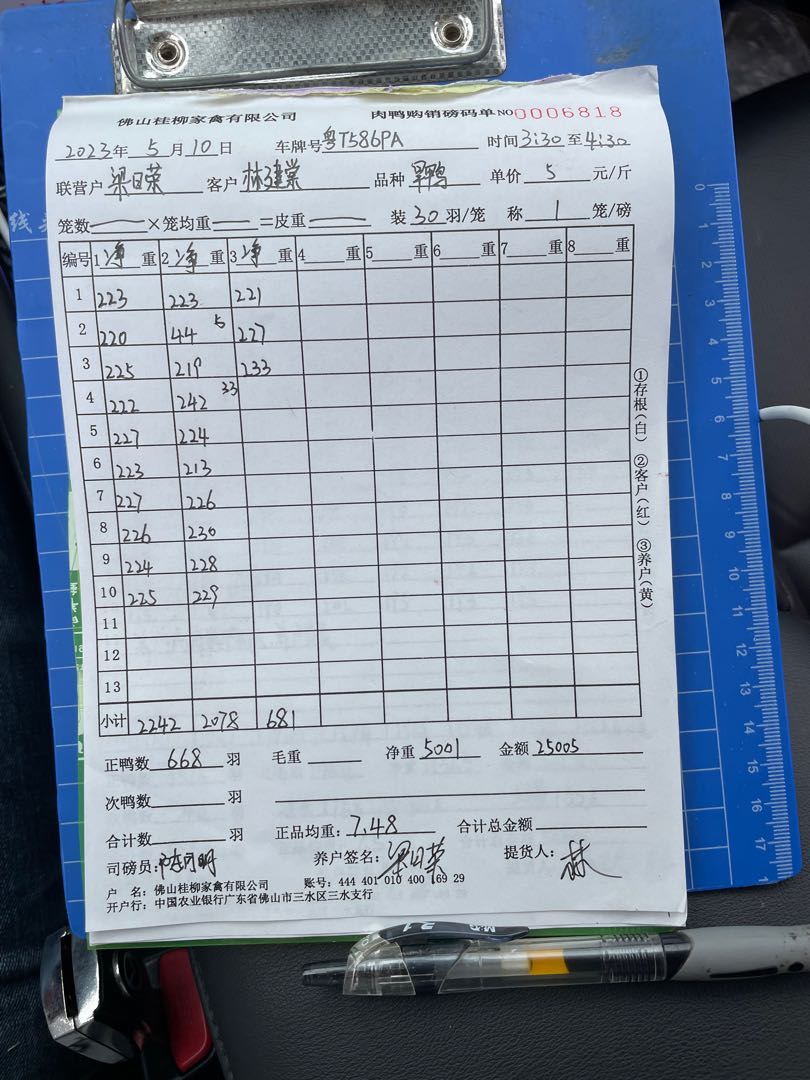 佛山桂柳家禽有限公司 肉鸭购销磅码单 NO 0006818
2023年 5 月 10 日 车牌号 粤T586PA 时间 3:30 至 4:30
联营户 梁日荣 客户 林建棠 品种 鸭 单价 5 元/斤
笼数 × 笼均重 = 皮重 装 30 羽/笼 称 1 笼/磅
编号 1 净 重 2 净 重 3 净 重 4 重 5 重 6 重 7 重 8 重
1 223 223 221
2 220 44 5 227
3 225 219 233
4 222 242 33
5 227 224
6 223 213
7 227 226
8 226 230
9 224 228
10 225 229
11
12
13
小计 2242 2078 681
正鸭数 668 羽 毛重 净重 5001 金额 25005
次鸭数 羽
合计数 羽 正品均重: 7.48 合计总金额
司磅员: 养户签名: 梁日荣 提货人: 林
户 名: 佛山桂柳家禽有限公司 账号: 444 401 010 400 169 29
开户行: 中国农业银行广东省佛山市三水区三水支行
①存根(白) ②客户(红) ③养户(黄)
0 1 2 3 4 5 6 7 8 9 10 11 12 13 14 15 16 17